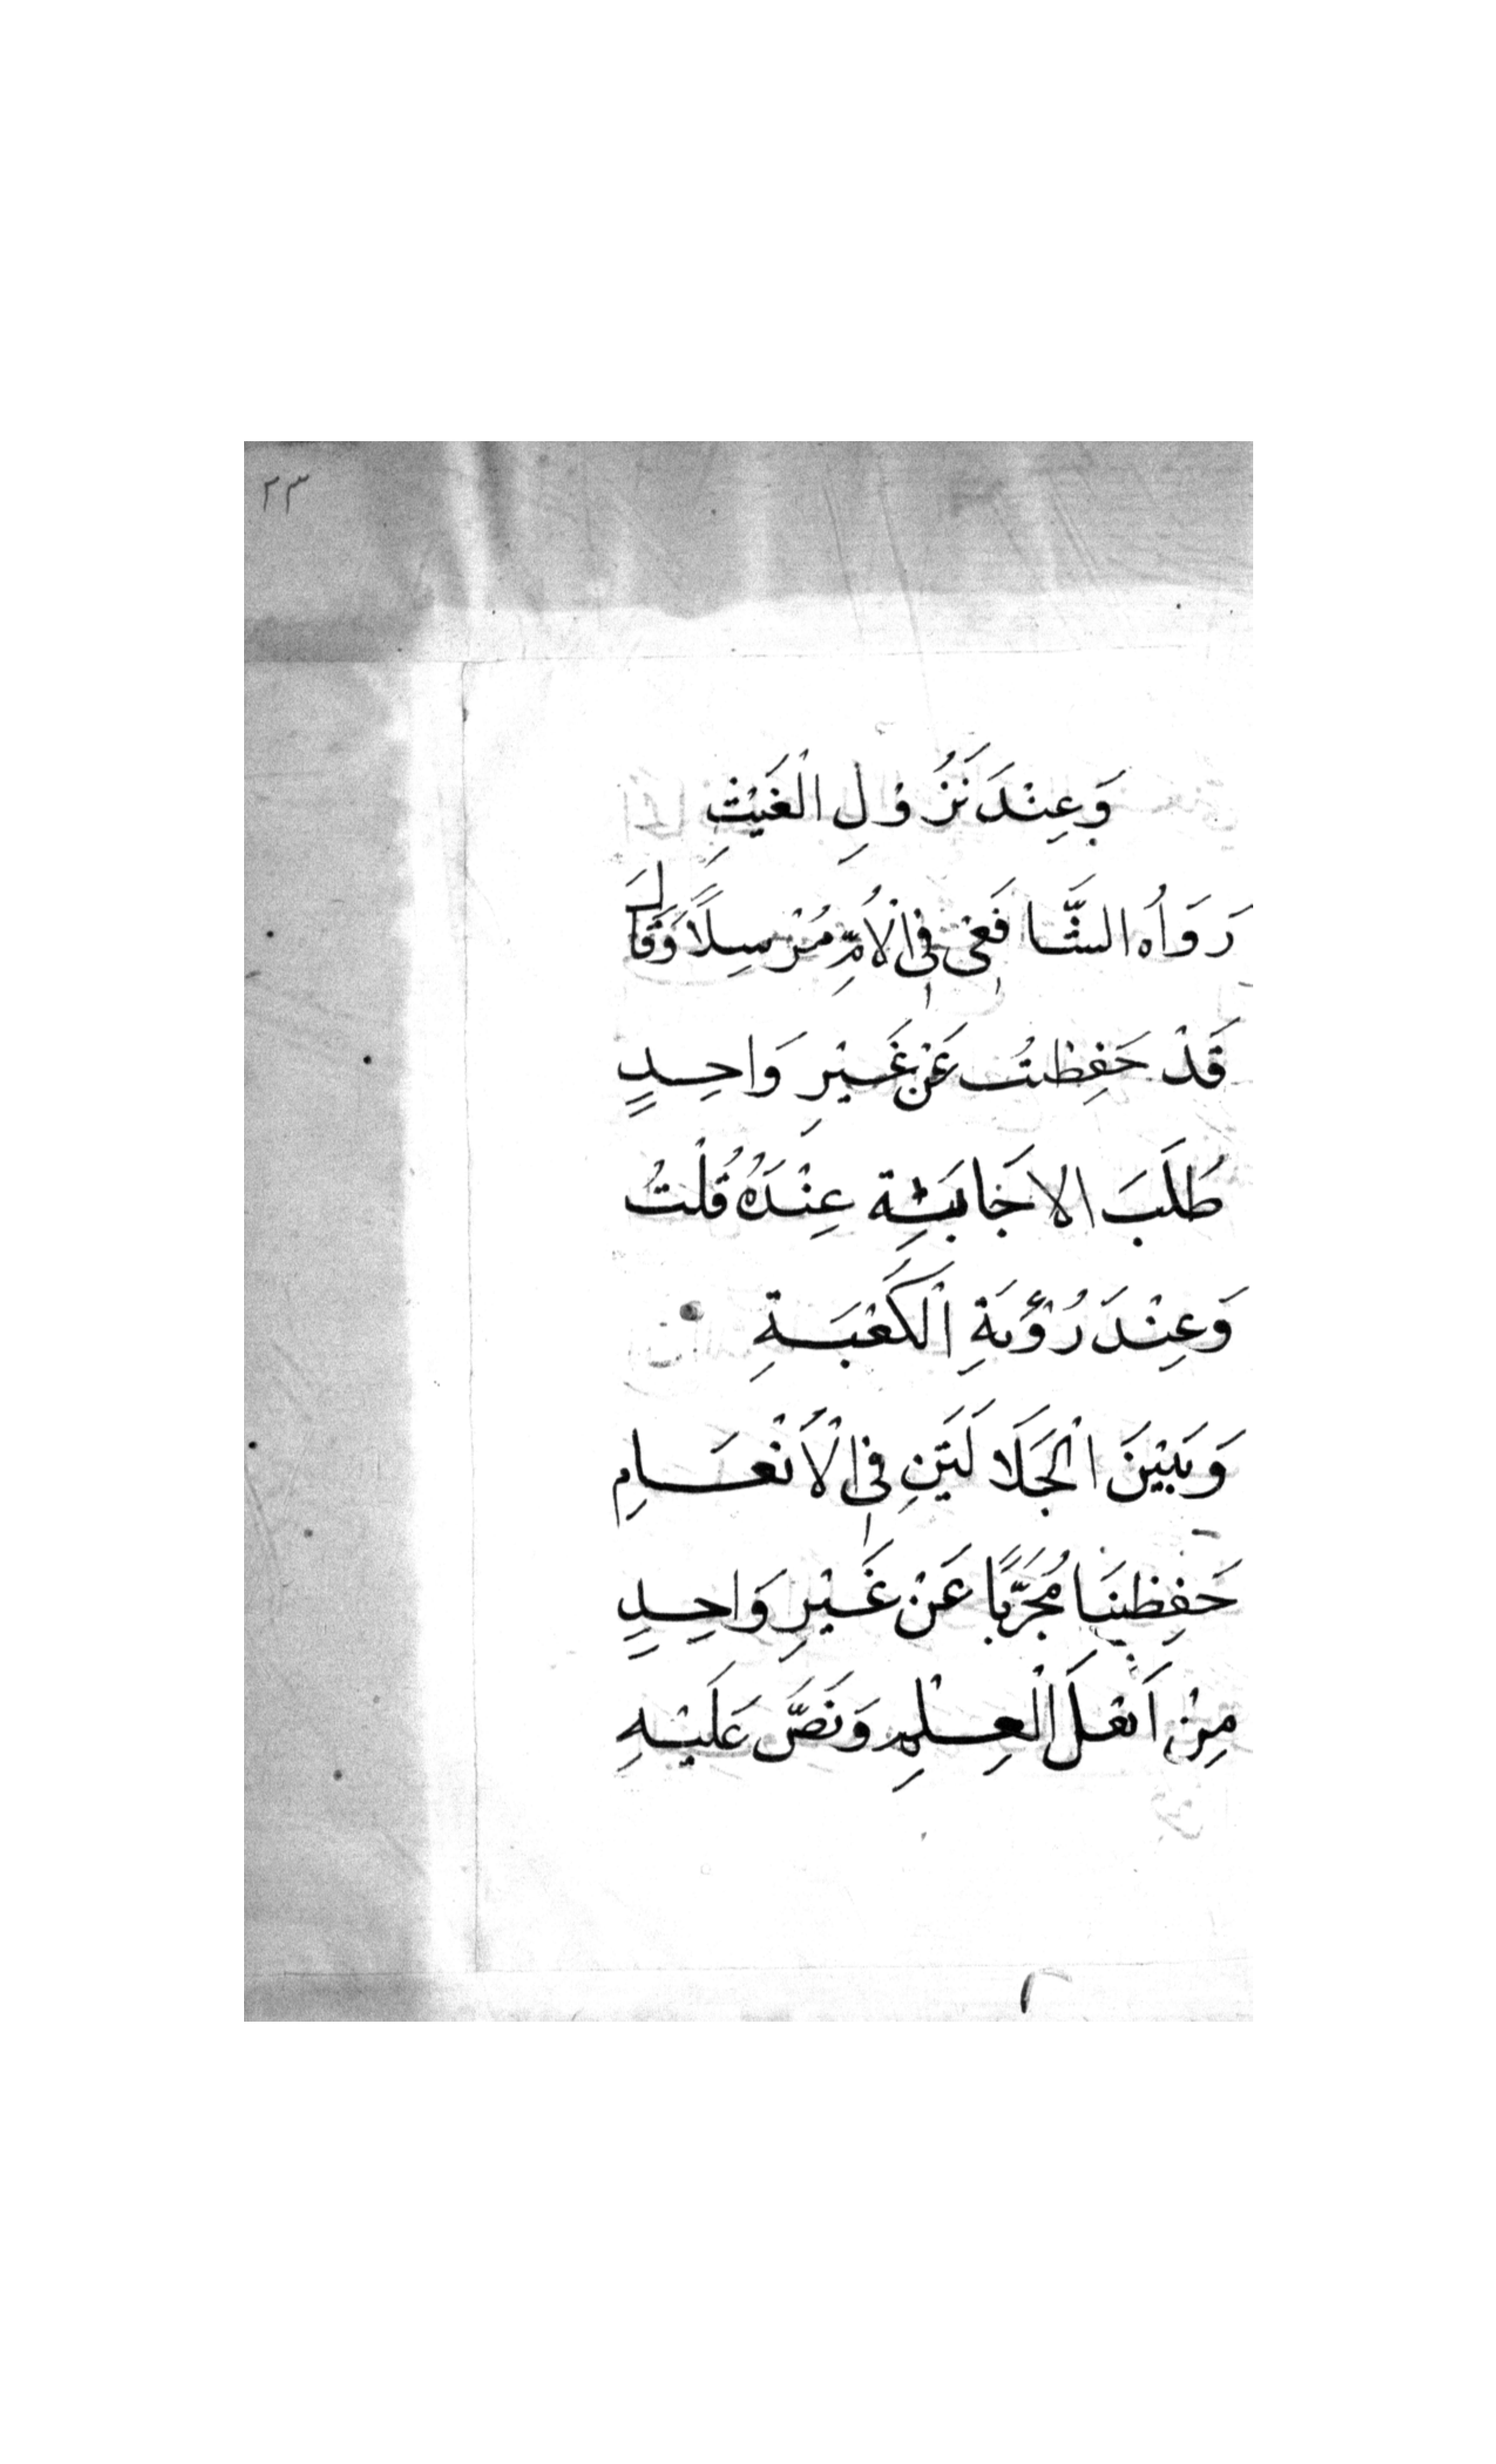 ٢٣
وَعِنْدَ نَزُوْلِ الْغَيْثِ
رَوَاُه الشَّافَعِیْ فِی الْاُمِّ مُرْسِلًا وَقَالَ
قَدْ حَفِظتُ عَنْ غَيْرِ وَاحِدٍ
طَلَبَ الاجَابَةِ عِنْدَهُ قُلْتُ
وَعِنْدَ رُؤْيَةِ الْكَعْبَةِ
وَبَيْنَ الْجَلَالَتَيْنِ فِی الْاَنْعَامِ
حَفِظنَا مُجَرَّبًا عَنْ غَيْرِ وَاحِدٍ
مِنْ اَهْلَ الْعِلْمِ وَنَصَّ عَلَيْهِ